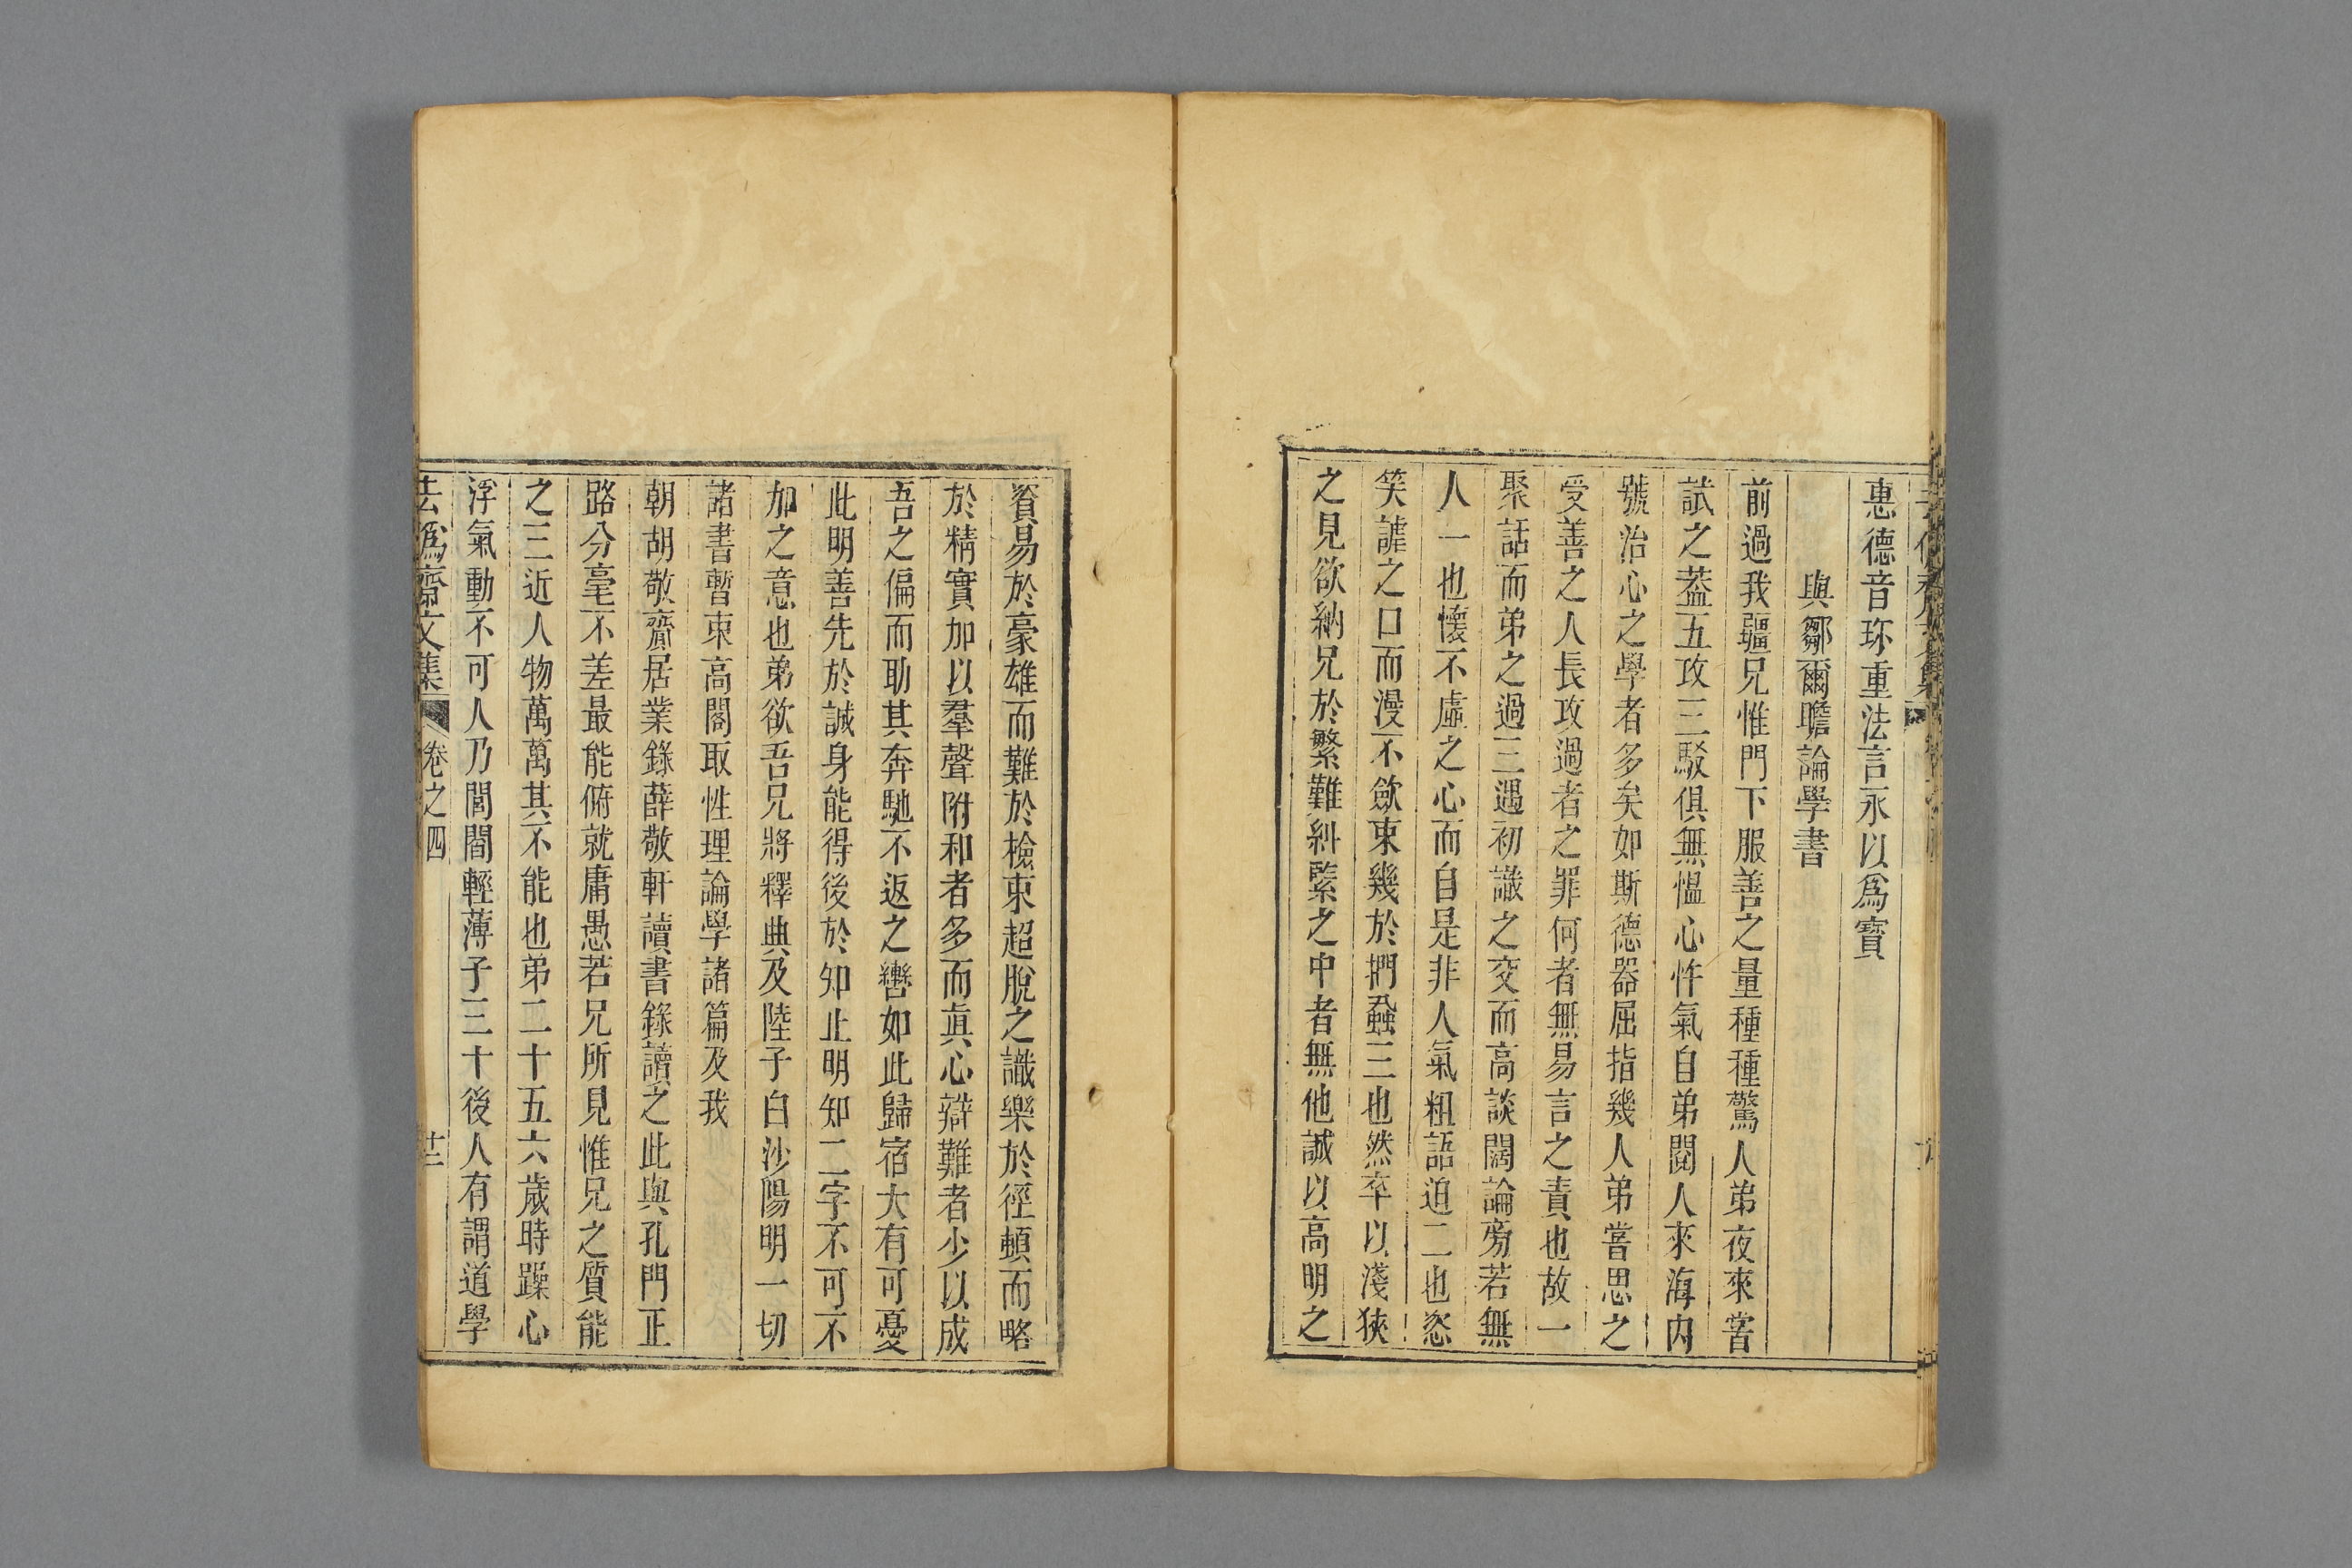 惠德音珎重法言永以爲寶
與鄒爾瞻論學書
前過我疆兄惟門下服善之量種種驚人弟夜來嘗
試之葢五攻三駁俱無愠心忤氣自弟閱人來海内
號治心之學者多矣如斯德器屈指幾人弟嘗思之
受善之人長攻過者之罪何者無易言之責也故一
聚話而弟之過三遇初識之交而高談闊論旁若無
人一也懷不虛之心而自是非人氣粗語迫二也恣
笑謔之口而漫不歛束幾於捫蝨三也然卒以淺狹
之見欲納兄於繁難糾縶之中者無他誠以高明之
資易於豪雄而難於檢束超脫之識樂於徑頓而略
於精實加以羣聲附和者多而眞心辯難者少以成
吾之偏而助其奔馳不返之轡如此歸宿大有可憂
此明善先於誠身能得後於知止明知二字不可不
加之意也弟欲吾兄將釋典及陸子白沙陽明一切
諸書暫束高閣取性理論學諸篇及我
朝胡敬齋居業錄薛敬軒讀書錄讀之此與孔門正
路分毫不差最能俯就庸愚若兄所見惟兄之質能
之三近人物萬萬其不能也弟二十五六歲時躁心
浮氣動不可人乃閭閻輕薄子三十後人有謂道學
去爲齋文集 卷之四 十三